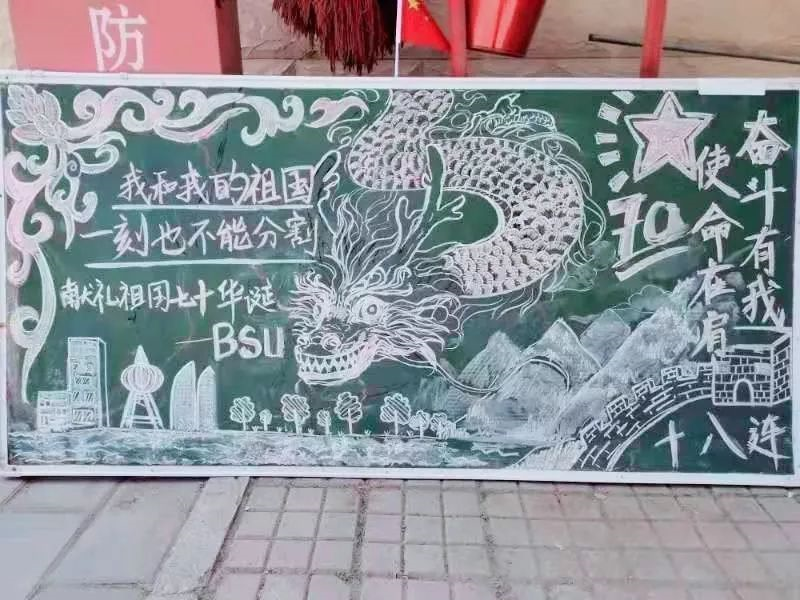 防
我和我的祖国
一刻也不能分割
献礼祖国七十华诞
BSU
70
奋斗有我
使命在肩
十八连